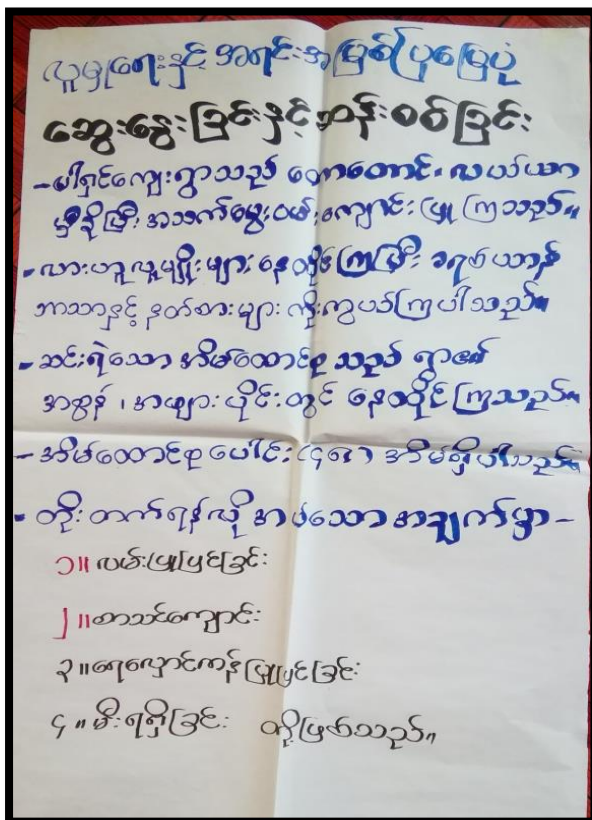 လူမှုရေးနှင့် အရင်းအမြစ်ပြမြေပုံ
ဆွေးနွေးခြင်းနှင့်ဆန်းစစ်ခြင်း
- ပါရှင်ကျေးရွာသည် တောတောင်၊ လယ်ယာ
မှီခိုပြီး အသက်မွေးဝမ်းကျောင်း ပြုကြသည်။
- လားဟူလူမျိုးများ နေထိုင်ကြပြီး ခရစ်ယာန်
ဘာသာနှင့် နတ်စားများ ကိုးကွယ်ကြပါသည်။
- ဆင်းရဲသော အိမ်ထောင်စု သည် ရွာ၏
အစွန် ၊ အဖျား ပိုင်းတွင် နေထိုင်ကြသည်။
- အိမ်ထောင်စု ပေါင်း အိမ်ရှိပါသည်။
- တိုးတက်ရန်လိုအပ်သော အချက်မှာ -
၁။ လမ်းပြုပြင်ခြင်း
၂။ စာသင်ကျောင်း
၃။ ရေလှောင်ကန်ပြုပြင်ခြင်း
၄။ မီးရရှိခြင်း တို့ဖြစ်သည်။